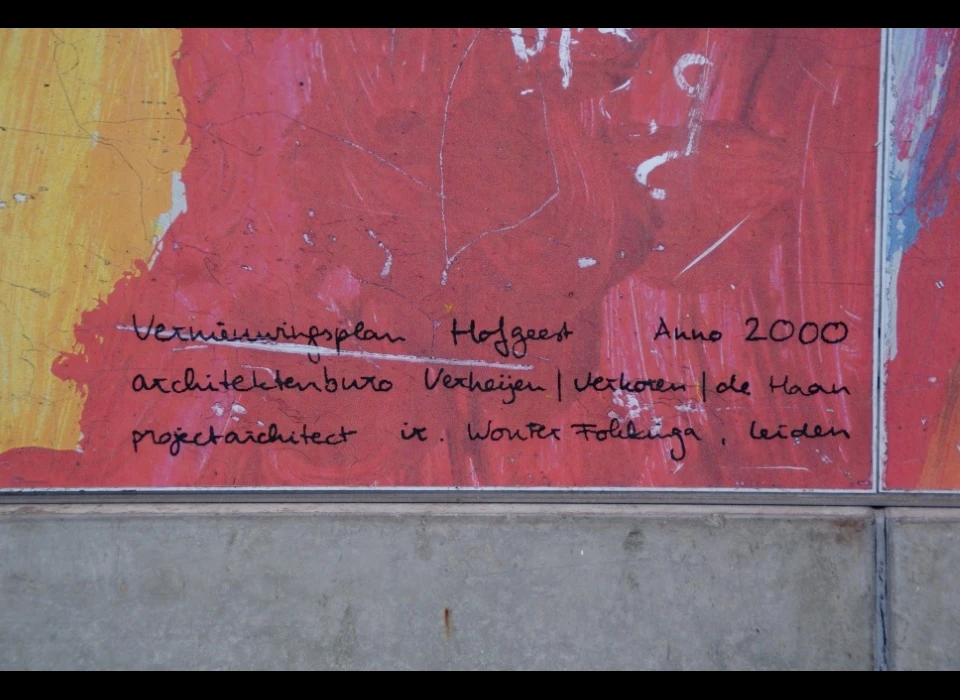 Vernieuwingsplan Hofgeest Anno 2000
architektenburo Verheijen | Verkoren | de Haan
projectarchitect ir. Wouter Fokkinga, Leiden